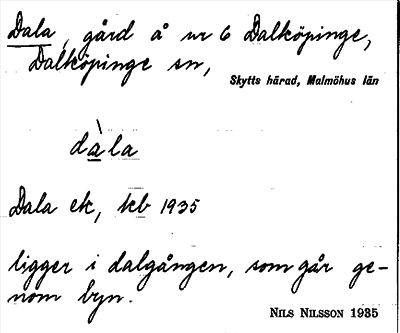 Dala, gård å nr 6 Dalköpinge,
Dalköpinge sn,
Skytts härad, Malmöhus län
dàla
Dala ek, kb 1935
ligger i dalgången, som går ge-
nom byn.
NILS NILSSON 1935